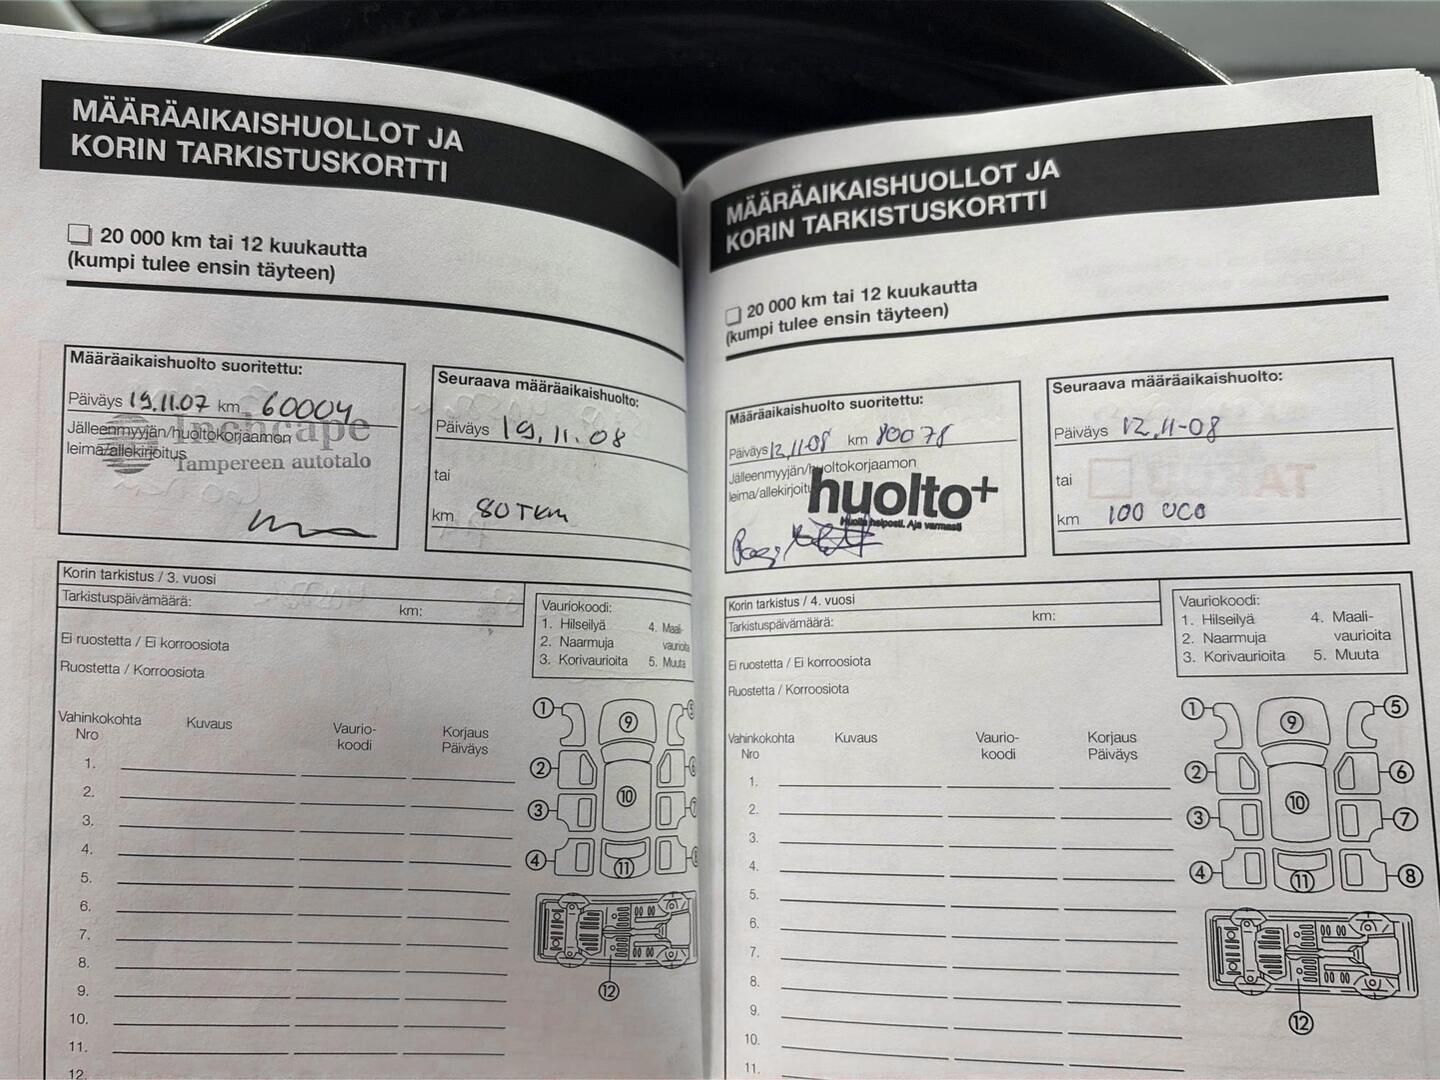 MÄÄRÄAIKAISHUOLLOT JA
KORIN TARKISTUSKORTTI
20 000 km tai 12 kuukautta
(kumpi tulee ensin täyteen)
Määräaikaishuolto suoritettu:
Päiväys 19.11.07 km 60004
Jälleenmyyjän/huoltokorjaamon
leima/allekirjoitus
Inchcape
Tampereen autotalo
Seuraava määräaikaishuolto:
Päiväys 19.11.08
tai
km 80 TKM
Korin tarkistus / 3. vuosi
Tarkistuspäivämäärä: km:
Ei ruostetta / Ei korroosiota
Ruostetta / Korroosiota
Vauriokoodi:
1. Hilseilyä 4. Maali-
2. Naarmuja vaurioita
3. Korivaurioita 5. Muuta
Vahinkokohta Kuvaus Vaurio- Korjaus
Nro koodi Päiväys
1.
2.
3.
4.
5.
6.
7.
8.
9.
10.
11.
12.
1 9 5
2 6
3 10 7
4 11 8
12
MÄÄRÄAIKAISHUOLLOT JA
KORIN TARKISTUSKORTTI
20 000 km tai 12 kuukautta
(kumpi tulee ensin täyteen)
Määräaikaishuolto suoritettu:
Päiväys 12.11-08 km 80078
Jälleenmyyjän/huoltokorjaamon
leima/allekirjoitus
huolto+
Huolla helposti. Aja varmasti
Seuraava määräaikaishuolto:
Päiväys 12.11-08
tai
km 100 000
Korin tarkistus / 4. vuosi
Tarkistuspäivämäärä: km:
Ei ruostetta / Ei korroosiota
Ruostetta / Korroosiota
Vauriokoodi:
1. Hilseilyä 4. Maali-
2. Naarmuja vaurioita
3. Korivaurioita 5. Muuta
Vahinkokohta Kuvaus Vaurio- Korjaus
Nro koodi Päiväys
1.
2.
3.
4.
5.
6.
7.
8.
9.
10.
11.
1 9 5
2 6
3 10 7
4 11 8
12